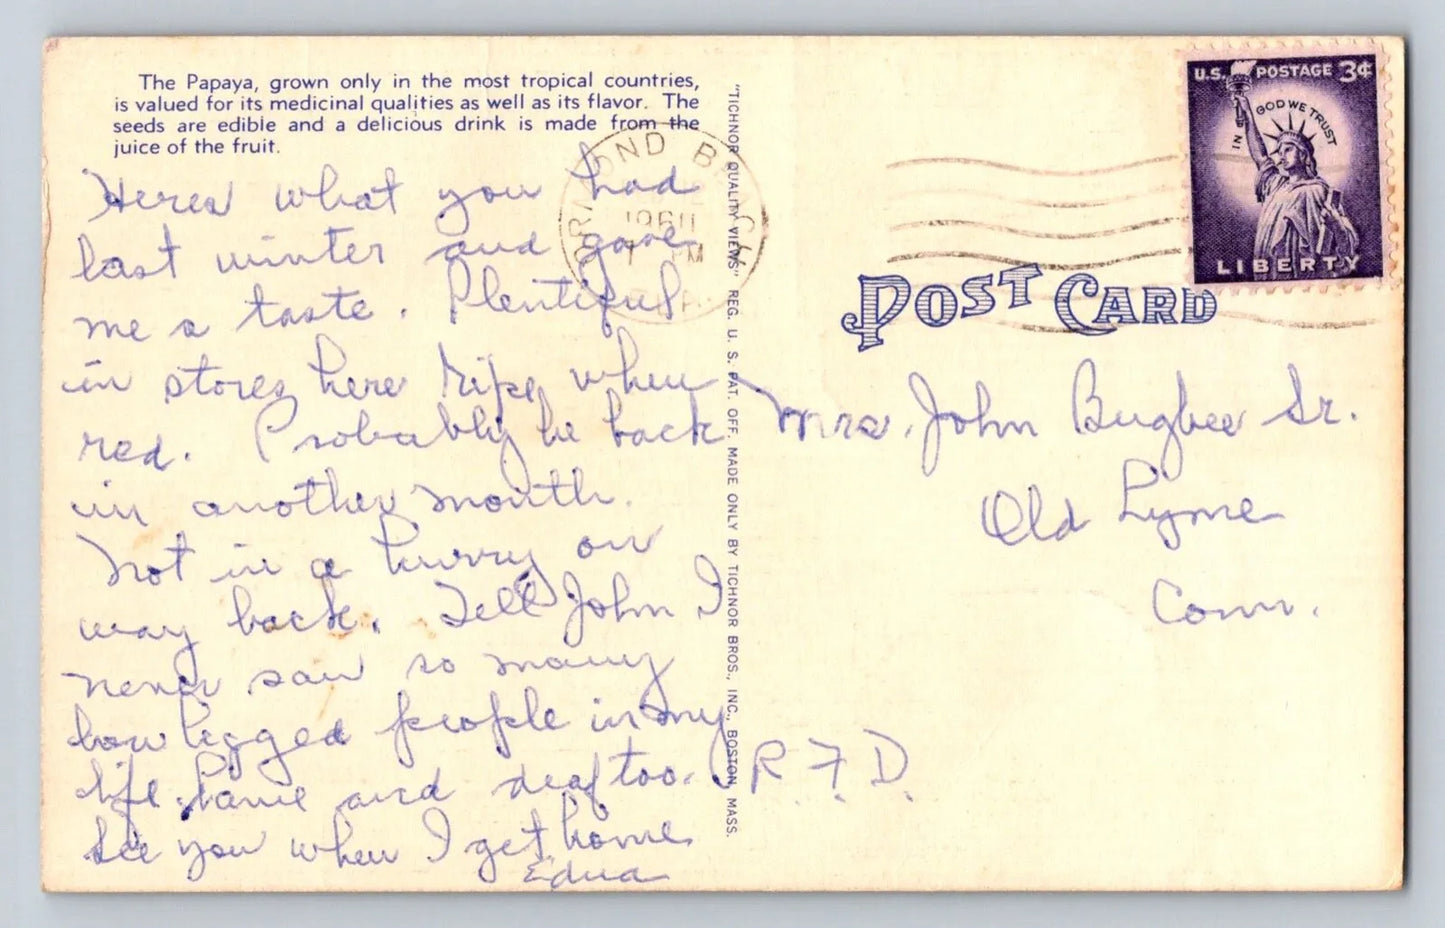 The Papaya, grown only in the most tropical countries,
is valued for its medicinal qualities as well as its flavor. The
seeds are edible and a delicious drink is made from the
juice of the fruit.
Heres what you had
last winter and gave
me a taste. Plentiful
in stores here ripe when
red. Probably be back
in another month.
Not in a hurry on
way back. Tell John I
never saw so many
bow legged people in my
life, lame and deaf too.
See you when I get home
Edna
"TICHNOR QUALITY VIEWS" REG. U. S. PAT. OFF. MADE ONLY BY TICHNOR BROS., INC., BOSTON, MASS.
ORMOND BEACH
PM
U.S. POSTAGE 3¢
IN GOD WE TRUST
LIBERTY
POST CARD
Mrs. John Bugbee Sr.
Old Lyme
Conn.
R.F.D.